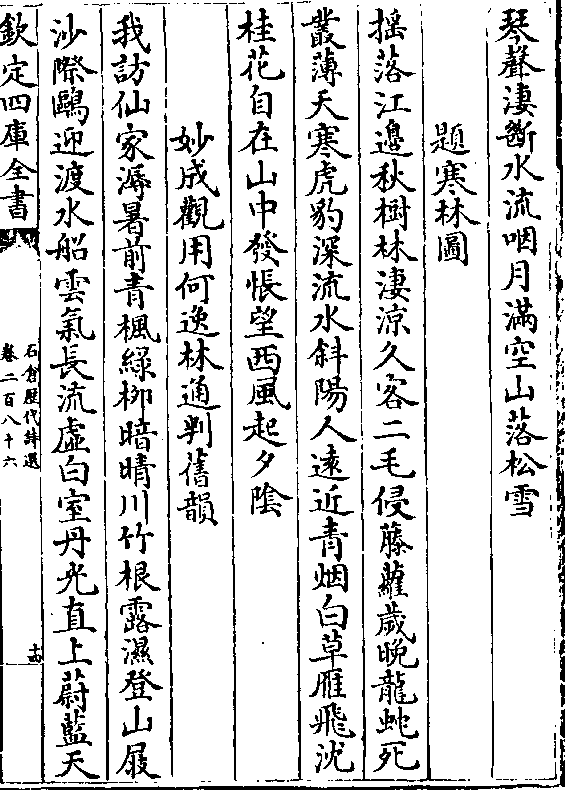 琴聲淒斷水流咽月滿空山落松雪
題寒林圖
揺落江邊秋樹林淒涼久客二毛侵藤蘿歲晚龍蛇死
叢薄天寒虎豹深流水斜陽人逺近青烟白草雁飛沈
桂花自在山中發悵望西風起夕陰
妙成觀用何逸林通判舊韻
我訪仙家溽暑前青楓緑柳暗晴川竹根露濕登山屐
沙際鷗迎渡水船雲氣長流虛白室丹光直上蔚藍天
欽定四庫全書
石倉歴代詩選
卷二百八十六
十四